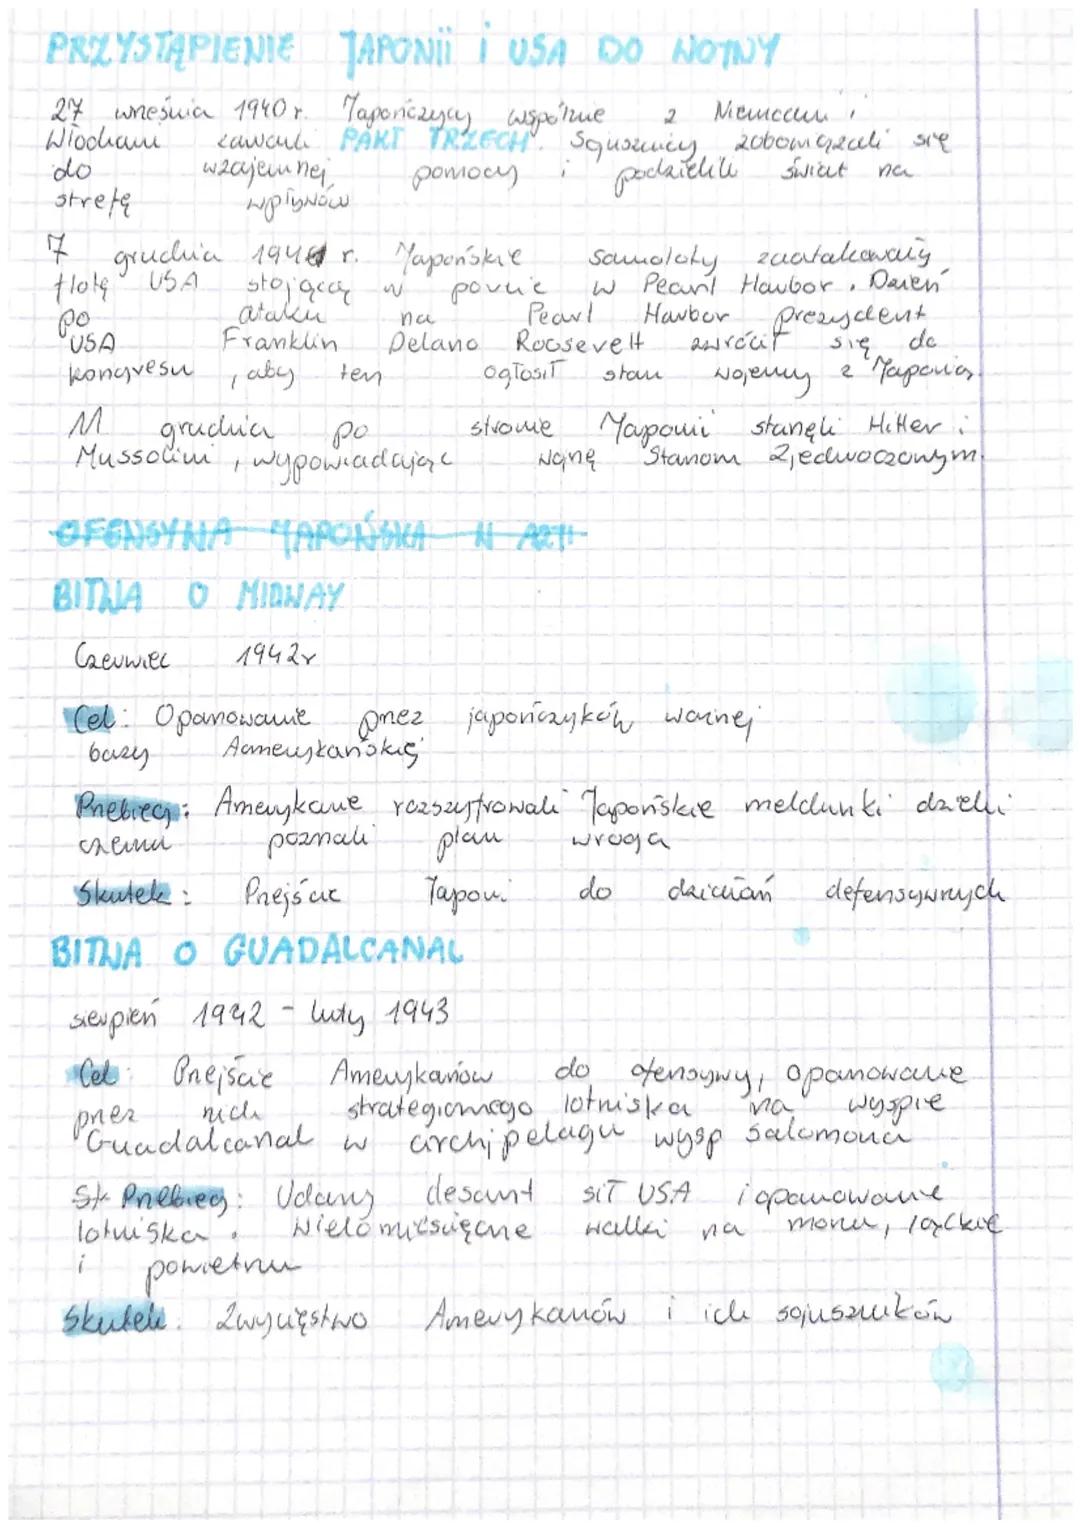 PRZYSTĄPIENIE JAPONII I USA DO WOJNY
27 września 1940 r. Japończycy wspólnie z Niemcami i
Włochami zawarli PAKT TRZECH. Sojusznicy zobowiązali się
do wzajemnej pomocy i podzielili świat na
strefę wpływów
7 grudnia 1941 r. Japońskie samoloty zaatakowały
flotę USA stojącą w porcie w Pearl Harbor. Dzień
po ataku na Pearl Harbor prezydent
USA Franklin Delano Roosevelt zwrócił się do
kongresu, aby ten ogłosił stan wojenny z Japonią.
11 grudnia po stronie Japonii stanęli Hitler i
Mussolini, wypowiadając wojnę Stanom Zjednoczonym.
OFENSYWA JAPOŃSKA W AZJI
BITWA O MIDWAY
Czerwiec 1942r
Cel: Opanowanie przez japończyków ważnej
bazy Aamerykańskiej
Przebieg: Amerykanie rozszyfrowali Japońskie meldunki dzięki
czemu poznali plan wroga
Skutek: Przejście Japoni do działań defensywnych
BITWA O GUADALCANAL
sierpień 1942 - luty 1943
Cel: Przejście Amerykanów do ofensywy, opanowanie
przez nich strategicznego lotniska na wyspie
Guadalcanal w archipelagu wysp Salomona
Sk Przebieg: Udany desant sił USA i opanowanie
lotniska. Wielomiesięczne walki na morzu, lądzie
i powietrzu
Skutek: Zwycięstwo Amerykanów i ich sojuszników